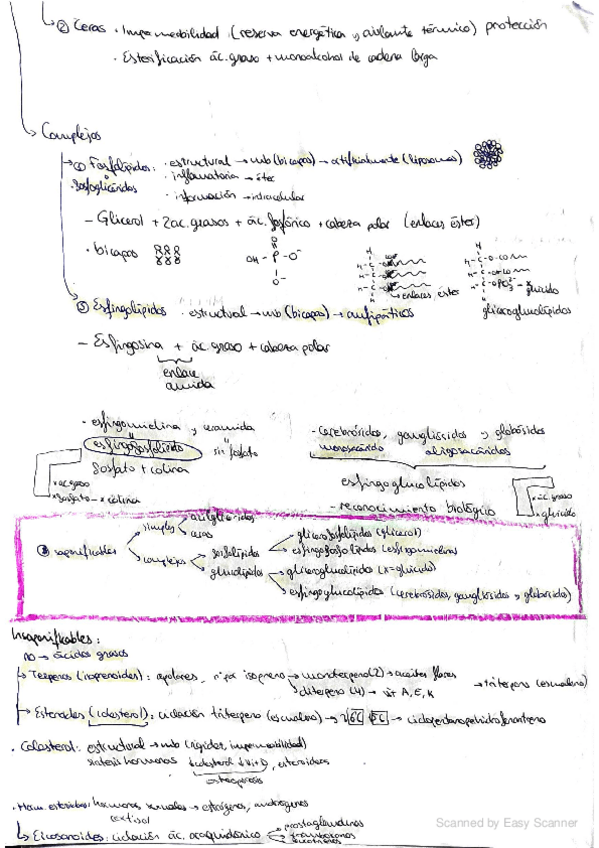 ② Ceras · Impermeabilidad (reserva energética y aislante térmico) protección
· Esterificación ác. graso + monoalcohol de cadena larga
Complejos
① Fosfolípidos: · estructural → mb (bicapas) → artificialmente (liposomas)
· inflamatoria →
· información → intracelular
- Glicerol + 2 ac. grasos + ác. fosfórico + cabeza polar (enlaces éster)
· bicapas
OH - P - O⁻
O
O⁻
enlaces éster
glúcido
gliceroglucolípidos
② Esfingolípidos · estructural → mb (bicapas) → anfipáticos
- Esfingosina + ác. graso + cabeza polar
enlace
amida
· esfingomielina y ceramida
esfingofosfolípido sin fosfato
fosfato + colina
ac. graso
fosfato - colina
- cerebrósidos, gangliósidos y globósidos
monosacárido oligosacáridos
esfingoglucolípidos
- reconocimiento biológico
ác. graso
glúcido
saponificables
simples
acilglicéridos
ceras
complejos
fosfolípidos
glicerofosfolípidos (glicerol)
esfingofosfolípidos (esfingomielinas)
glucolípidos
gliceroglucolípidos (x = glúcido)
esfingoglucolípidos (cerebrósidos, gangliósidos y globósidos)
Insaponificables:
no → ácidos grasos
Terpenos (isoprenoides): apolares, nº por isopreno → monoterpeno (2) → aceites flores
diterpeno (4) → vit A, E, K
→ triterpeno (escualeno)
Esteroides (colesterol): ciclación triterpeno (escualeno) → → ciclopentanoperhidrofenantreno
· Colesterol: estructural → mb (rigidez, impermeabilidad)
síntesis hormonas
· Horm. esteroideas: hormonas sexuales → estrógenos, andrógenos
cortisol
Eicosanoides: ciclación ác. araquidónico
prostaglandinas
tromboxanos
leucotrienos
Scanned by Easy Scanner